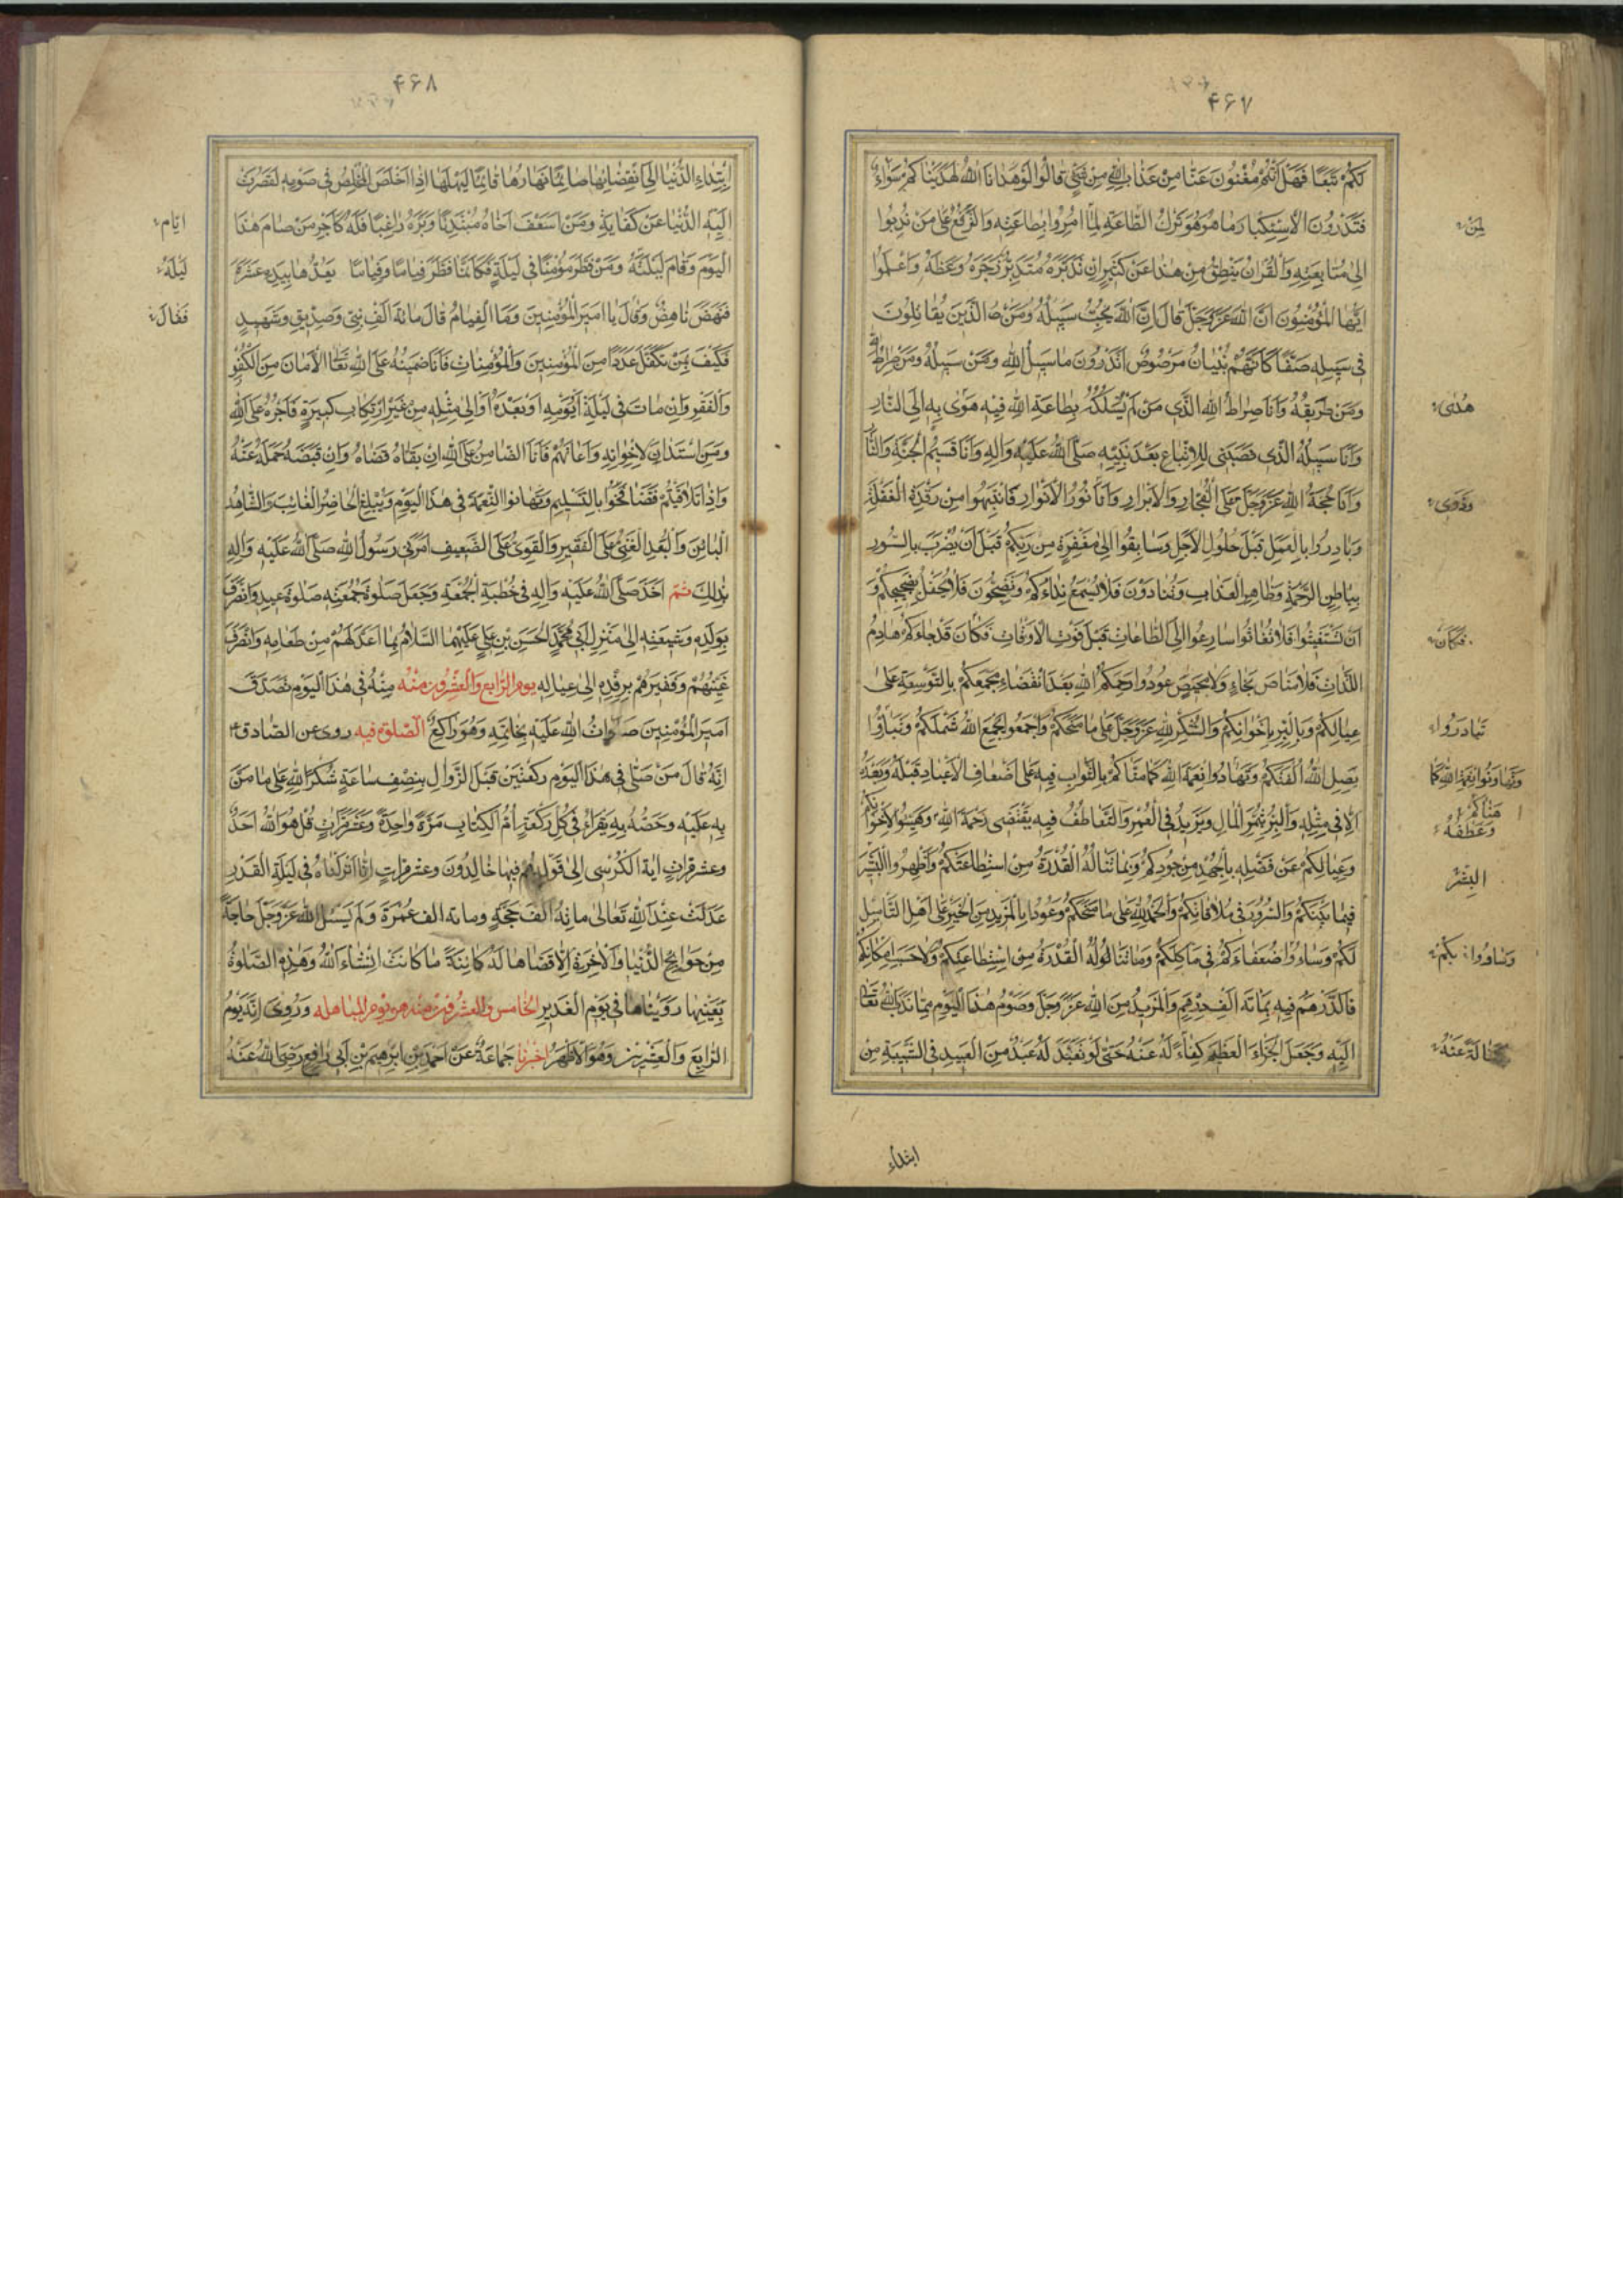 ۴۶۷
لَكُمْ تَبَعًا فَهَلْ أَنْتُمْ مُغْنُونَ عَنَّا مِنْ عَذَابِ اللهِ مِنْ شَيْءٍ قَالُوا لَوْ هَدَانَا اللهُ لَهَدَيْنَاكُمْ سَوَاءٌ
فَتَدْرُونَ الْاِسْتِكْبَارَ مَا هُوَ هُوَ تَرْكُ الطَّاعَةِ لِمَا اُمِرُوا بِطَاعَتِهِ وَالتَّرَفُّعُ عَلَى مَنْ نُدِبُوا
لِمَنْ
اِلىٰ مُتَابَعَتِهِ وَالْقُرْاٰنُ يَنْطِقُ مِنْ هٰذَا عَنْ كَثِيرٍ اِنْ تَدَبَّرَهُ مُتَدَبِّرٌ زَجَرَهُ وَوَعَظَهُ وَاعْلَمُوا
اَيُّهَا الْمُؤْمِنُونَ اَنَّ اللهَ عَزَّ وَجَلَّ قَالَ اِنَّ اللهَ يُحِبُّ الَّذِينَ يُقَاتِلُونَ
فِي سَبِيلِهِ صَفًّا كَاَنَّهُمْ بُنْيَانٌ مَرْصُوصٌ اَتَدْرُونَ مَا سَبِيلُ اللهِ وَمَنْ سَبِيلُهُ وَمَنْ صِرَاطُ اللهِ
وَمَنْ طَرِيقُهُ وَاَنَا صِرَاطُ اللهِ الَّذِي مَنْ لَمْ يَسْلُكْهُ بِطَاعَةِ اللهِ فِيهِ هَوٰى بِهِ اِلَى النَّارِ
هُدِيَ
وَاَنَا سَبِيلُهُ الَّذِي نَصَبَنِي لِلاِتِّبَاعِ بَعْدَ نَبِيِّهِ صَلَّى اللهُ عَلَيْهِ وَالِهِ وَاَنَا قَسِيمُ الْجَنَّةِ وَالنَّارِ
وَاَنَا حُجَّةُ اللهِ عَزَّ وَجَلَّ عَلَى الْفُجَّارِ وَالْاَبْرَارِ وَاَنَا نُورُ الْاَنْوَارِ فَانْتَبِهُوا مِنْ رَقْدَةِ الْغَفْلَةِ
وَبَادِرُوا بِالْعَمَلِ قَبْلَ حُلُولِ الْاَجَلِ وَسَابِقُوا اِلىٰ مَغْفِرَةٍ مِنْ رَبِّكُمْ قَبْلَ اَنْ يُضْرَبَ بِالسُّورِ
بِبَاطِنِ الرَّحْمَةِ وَظَاهِرِ الْعَذَابِ وَتُنَادَوْنَ فَلَا يُسْمَعُ نِدَاءُكُمْ وَتَضِجُّونَ فَلَا يُحْفَلُ بِضَجِيجِكُمْ وَ
اَنْ تَسْتَغِيثُوا فَلَا تُغَاثُوا سَارِعُوا اِلَى الطَّاعَاتِ قَبْلَ فَوْتِ الْاَوْقَاتِ فَكَانَ قَدْ جَاءَكُمْ هَادِمُ
فَكَانَ
اللَّذَّاتِ فَلَا مَنَاصَ نَجَاءٍ وَلَا مَحِيصَ عُودُوا رَحِمَكُمُ اللهُ بَعْدَ انْقِضَاءِ مَجْمَعِكُمْ بِالتَّوْسِعَةِ عَلىٰ
عِيَالِكُمْ وَبِالْبِرِّ بِاِخْوَانِكُمْ وَالشُّكْرِ لِلّٰهِ عَزَّ وَجَلَّ عَلىٰ مَا مَنَحَكُمْ وَاجْمَعُوا يَجْمَعِ اللهُ شَمْلَكُمْ وَتَبَارُّوا
تَبَادَرُوا
يَصِلِ اللهُ اُلْفَتَكُمْ وَتَهَادُوا نِعْمَةَ اللهِ كَمَا مَنَّاكُمْ بِالثَّوَابِ فِيهِ عَلىٰ اَضْعَافِ الْاَعْيَادِ قَبْلَهُ وَبَعْدَهُ
اِلَّا فِي مِثْلِهِ وَالْبِرُّ يُثْمِرُ الْمَالَ وَيَزِيدُ فِي الْعُمْرِ وَالتَّعَاطُفُ فِيهِ يَقْتَضِي رَحْمَةَ اللهِ وَهَيِّئُوا لِاِخْوَانِكُمْ
هَنَّاكُمْ
وَعَطْفَهُ
وَعِيَالِكُمْ عَنْ فَضْلِهِ بِالْجُهْدِ مِنْ جُودِكُمْ وَبِمَا تَنَالُهُ الْقُدْرَةُ مِنِ اسْتِطَاعَتِكُمْ وَاَظْهِرُوا الْبِشْرَ
البِشْرَ
فِيمَا بَيْنَكُمْ وَالسُّرُورَ فِي مُلَاقَاتِكُمْ وَالْحَمْدُ لِلّٰهِ عَلىٰ مَا مَنَحَكُمْ وَعُودُوا بِالْمَزِيدِ مِنَ الْخَيْرِ عَلىٰ اَهْلِ التَّأْمِيلِ
لَكُمْ وَسَاوُوا ضُعَفَاءَكُمْ فِي مَآكِلِكُمْ وَمَا تَنَالُهُ الْقُدْرَةُ مِنِ اسْتِطَاعَتِكُمْ وَعَلىٰ حَسَبِ اِمْكَانِكُمْ
وَسَاوُوا بِكُمْ
فَالدِّرْهَمُ فِيهِ بِمِائَةِ اَلْفِ دِرْهَمٍ وَالْمَزِيدُ مِنَ اللهِ عَزَّ وَجَلَّ وَصَوْمُ هٰذَا الْيَوْمِ مِمَّا نَدَبَ اللهُ تَعَالىٰ
اِلَيْهِ وَجَعَلَ الْجَزَاءَ الْعَظِيمَ كِفَاءً لَهُ عَنْهُ حَتّٰى لَوْ تَعَبَّدَ لَهُ عَبْدٌ مِنَ الْعَبِيدِ فِي الشَّبِيبَةِ مِنَ
ابتداء
۴۶۸
اِبْتِدَاءِ الدُّنْيَا اِلىٰ انْقِضَائِهَا صَائِمًا نَهَارَهَا قَائِمًا لَيْلَهَا اِذَا اَخْلَصَ الْمُخْلِصُ فِي صَوْمِهِ لَقَصُرَتْ
اِلَيْهِ الدُّنْيَا عَنْ كِفَايَةٍ وَمَنْ اَسْعَفَ اَخَاهُ مُبْتَدِئًا وَبَرَّهُ رَاغِبًا فَلَهُ كَاَجْرِ مَنْ صَامَ هٰذَا
ايّام
الْيَوْمَ وَقَامَ لَيْلَتَهُ وَمَنْ فَطَّرَ مُؤْمِنًا فِي لَيْلَةٍ فَكَاَنَّمَا فَطَّرَ فِيَامًا وَفِيَامًا يَعُدُّهَا بِيَدِهِ عَشَرَةً
لَيْلَهُ
فَنَهَضَ نَاهِضٌ وَقَالَ يَا اَمِيرَ الْمُؤْمِنِينَ وَمَا الْفِيَامُ قَالَ مِائَةُ اَلْفِ نَبِيٍّ وَصِدِّيقٍ وَشَهِيدٍ
فَقَالَ
فَكَيْفَ بِمَنْ تَكَفَّلَ عَدَدًا مِنَ الْمُؤْمِنِينَ وَالْمُؤْمِنَاتِ فَاَنَا ضَمِينُهُ عَلَى اللهِ تَعَالَى الْاَمَانَ مِنَ الْكُفْرِ
وَالْفَقْرِ وَاِنْ مَاتَ فِي لَيْلَتِهِ اَوْ يَوْمِهِ اَوْ بَعْدَهُ اِلىٰ مِثْلِهِ مِنْ غَيْرِ ارْتِكَابِ كَبِيرَةٍ فَاَجْرُهُ عَلَى اللهِ
وَمَنِ اسْتَدَانَ لِاِخْوَانِهِ وَاَعَانَهُمْ فَاَنَا الضَّامِنُ عَلَى اللهِ اِنْ بَقَّاهُ قَضَاهُ وَاِنْ قَبَضَهُ حَمَلَهُ عَنْهُ
وَاِذَا تَلَاقَيْتُمْ فَتَصَافَحُوا بِالتَّسْلِيمِ وَتَهَانَوُا النِّعْمَةَ فِي هٰذَا الْيَوْمِ وَلْيُبَلِّغِ الْحَاضِرُ الْغَائِبَ وَالشَّاهِدُ
الْبَائِنَ وَلْيَعُدِ الْغَنِيُّ عَلَى الْفَقِيرِ وَالْقَوِيُّ عَلَى الضَّعِيفِ اَمَرَنِي رَسُولُ اللهِ صَلَّى اللهُ عَلَيْهِ وَالِهِ
بِذٰلِكَ ثُمَّ اَخَذَ صَلَّى اللهُ عَلَيْهِ وَالِهِ فِي خُطْبَةِ الْجُمْعَةِ وَجَعَلَ صَلٰوةَ جُمْعَتِهِ صَلٰوةَ عِيدِهِ وَانْصَرَفَ
بِوَلَدِهِ وَشِيعَتِهِ اِلىٰ مَنْزِلِ اَبِي مُحَمَّدٍ الْحَسَنِ بْنِ عَلِيٍّ عَلَيْهِمَا السَّلَامُ بِمَا اَعَدَّ لَهُمْ مِنْ طَعَامِهِ وَانْصَرَفَ
غَنِيُّهُمْ وَفَقِيرُهُمْ بِرِفْدِهِ اِلىٰ عِيَالِهِ يوم الرّابع والعشرون منه مِنْهُ فِي هٰذَا الْيَوْمِ تَصَدَّقَ
اَمِيرُ الْمُؤْمِنِينَ صَلَوَاتُ اللهِ عَلَيْهِ بِخَاتَمِهِ وَهُوَ رَاكِعٌ الصّلوة فيه روى عن الصّادق ع
اِنَّهُ قَالَ مَنْ صَلّٰى فِي هٰذَا الْيَوْمِ رَكْعَتَيْنِ قَبْلَ الزَّوَالِ بِنِصْفِ سَاعَةٍ شُكْرًا لِلّٰهِ عَلىٰ مَا مَنَّ
بِهِ عَلَيْهِ وَخَصَّهُ بِهِ يَقْرَاءُ فِي كُلِّ رَكْعَةٍ اُمَّ الْكِتَابِ مَرَّةً وَاحِدَةً وَعَشْرَ مَرَّاتٍ قُلْ هُوَ اللهُ اَحَدٌ
وعشر مرّاتٍ اٰيَةَ الْكُرْسِي اِلىٰ قَوْلِهِ هُمْ فِيهَا خَالِدُونَ وعشر مرّاتٍ اِنَّا اَنْزَلْنَاهُ فِي لَيْلَةِ الْقَدْرِ
عَدَلَتْ عِنْدَ اللهِ تَعَالىٰ مِائَةَ اَلْفِ حَجَّةٍ ومائة الف عُمْرَةٍ وَلَمْ يَسْئَلِ اللهَ عَزَّ وَجَلَّ حَاجَةً
مِنْ حَوَائِجِ الدُّنْيَا وَالْاٰخِرَةِ اِلَّا قَضَاهَا لَهُ كَائِنَةً مَا كَانَتْ اِنْشَاءَ اللهُ وَهٰذِهِ الصَّلٰوةُ
بِعَيْنِهَا رَوَيْنَاهَا فِي يَوْمِ الْغَدِيرِ الخامس والعشرون منه هو يوم المباهله وَرُوِيَ اَنَّهُ يَوْمُ
الرَّابِعِ وَالْعِشْرِينَ وَهُوَ الْاَظْهَرُ اَخْبَرَنَا جَمَاعَةٌ عَنْ اَحْمَدَ بْنِ اِبْرٰهِيمَ بْنِ اَبِي رَافِعٍ رَضِيَ اللهُ عَنْهُ